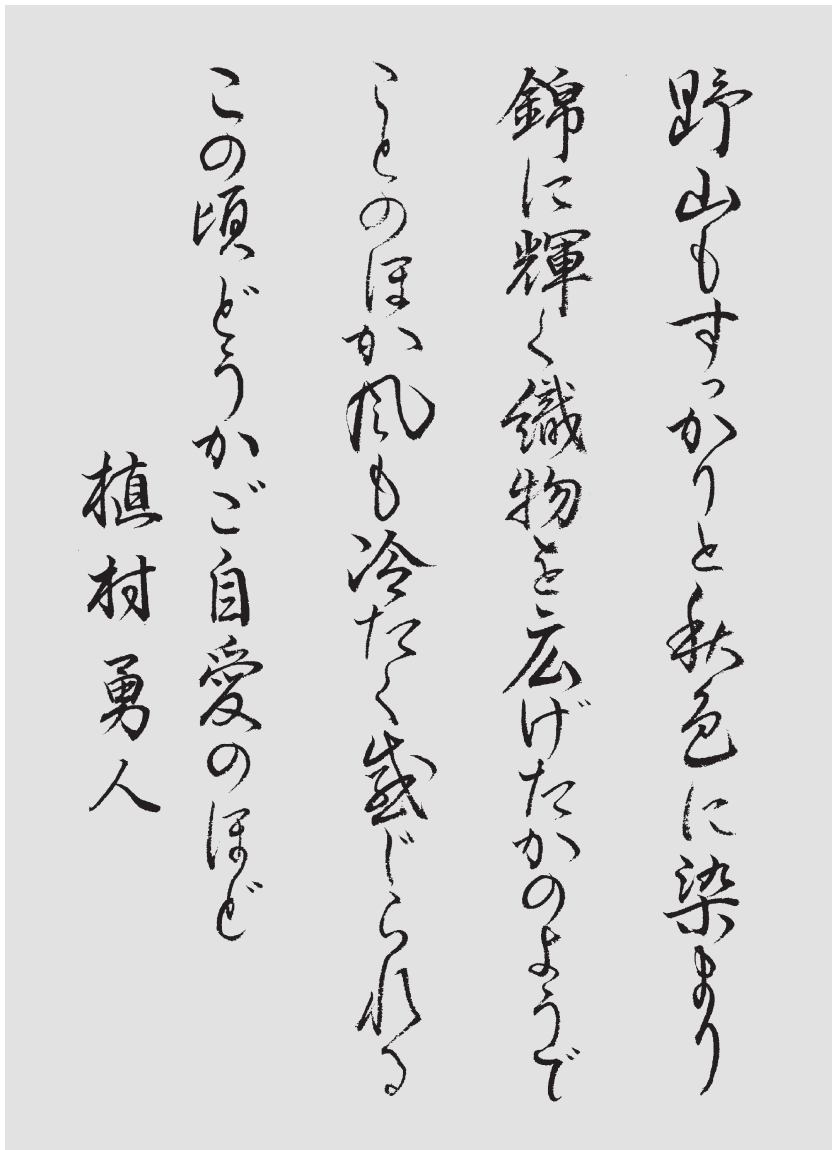 野山もすっかりと秋色に染まり
錦に輝く織物を広げたかのようで
ことのほか風も冷たく感じられる
この頃どうかご自愛のほど
植村勇人